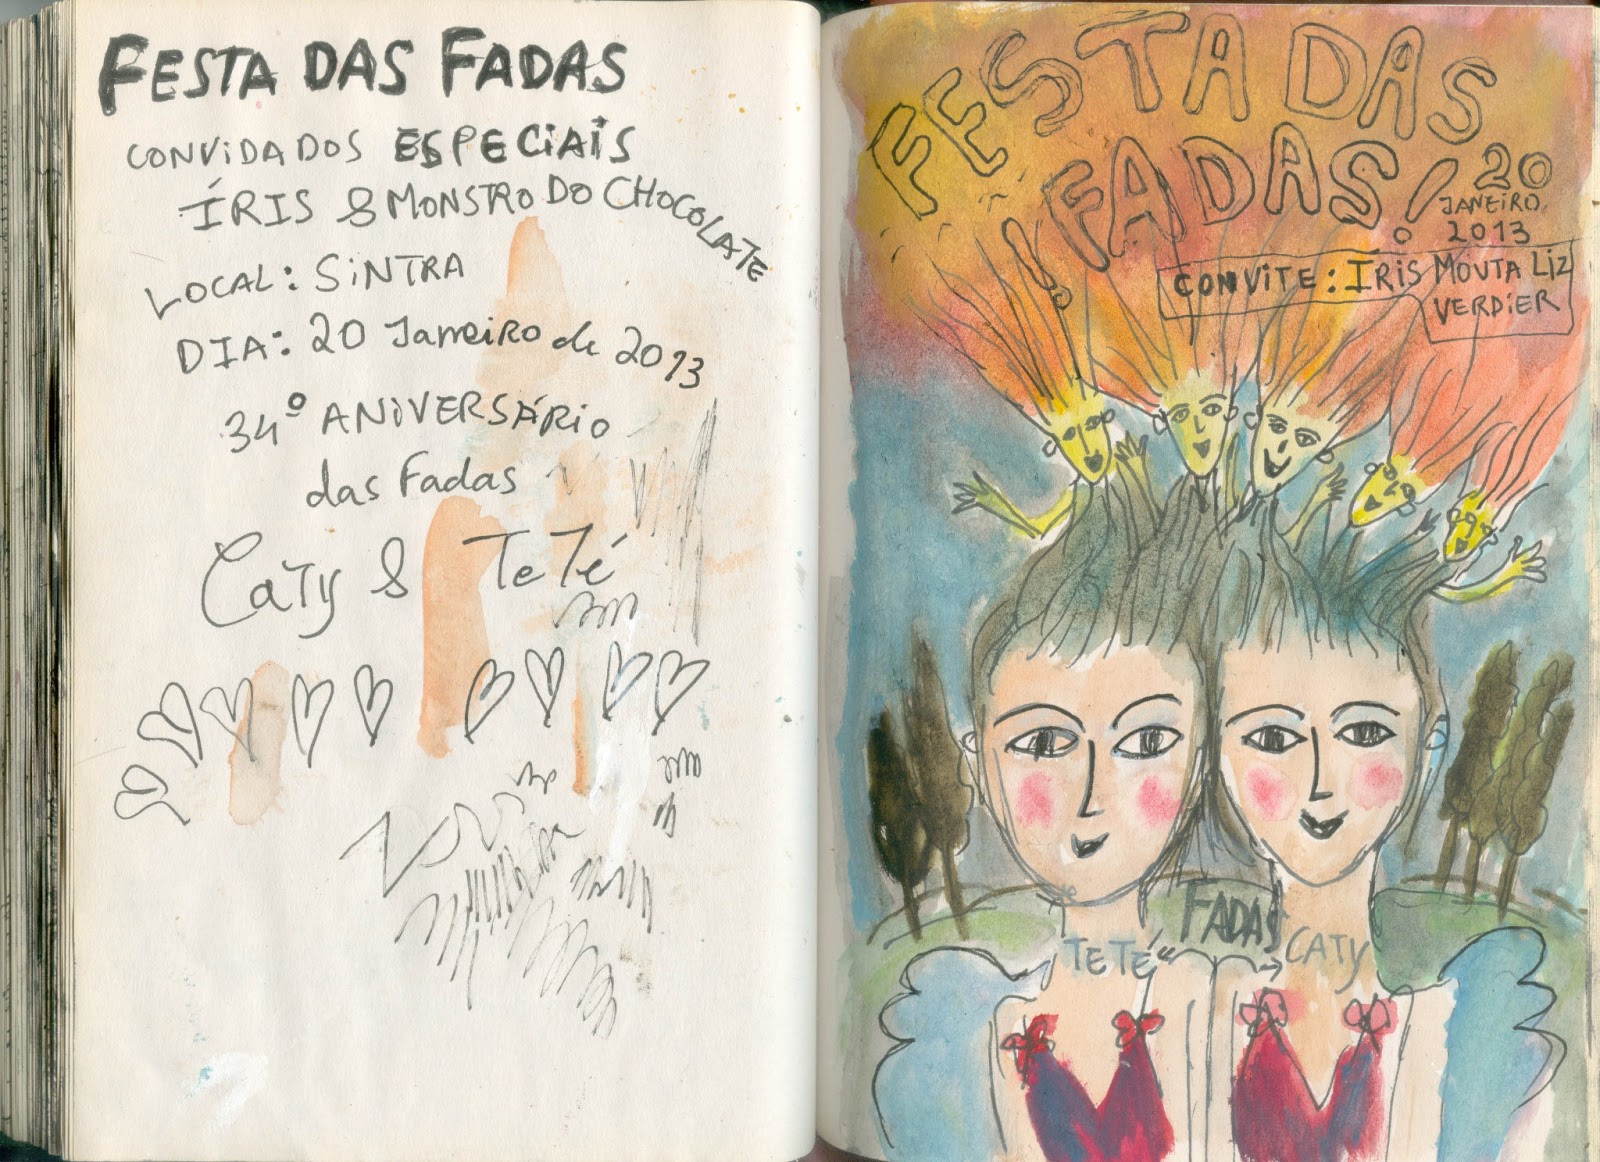 FESTA DAS FADAS
CONVIDADOS ESPECIAIS
ÍRIS & MONSTRO DO CHOCOLATE
LOCAL: SINTRA
DIA: 20 Janeiro de 2013
34º ANIVERSÁRIO
das Fadas
CATY & TeTé
FESTA DAS
¡FADAS!
20
JANEIRO
2013
CONVITE: ÍRIS MOUTA LIZ
VERDIER
FADAS
TETÉ
CATY